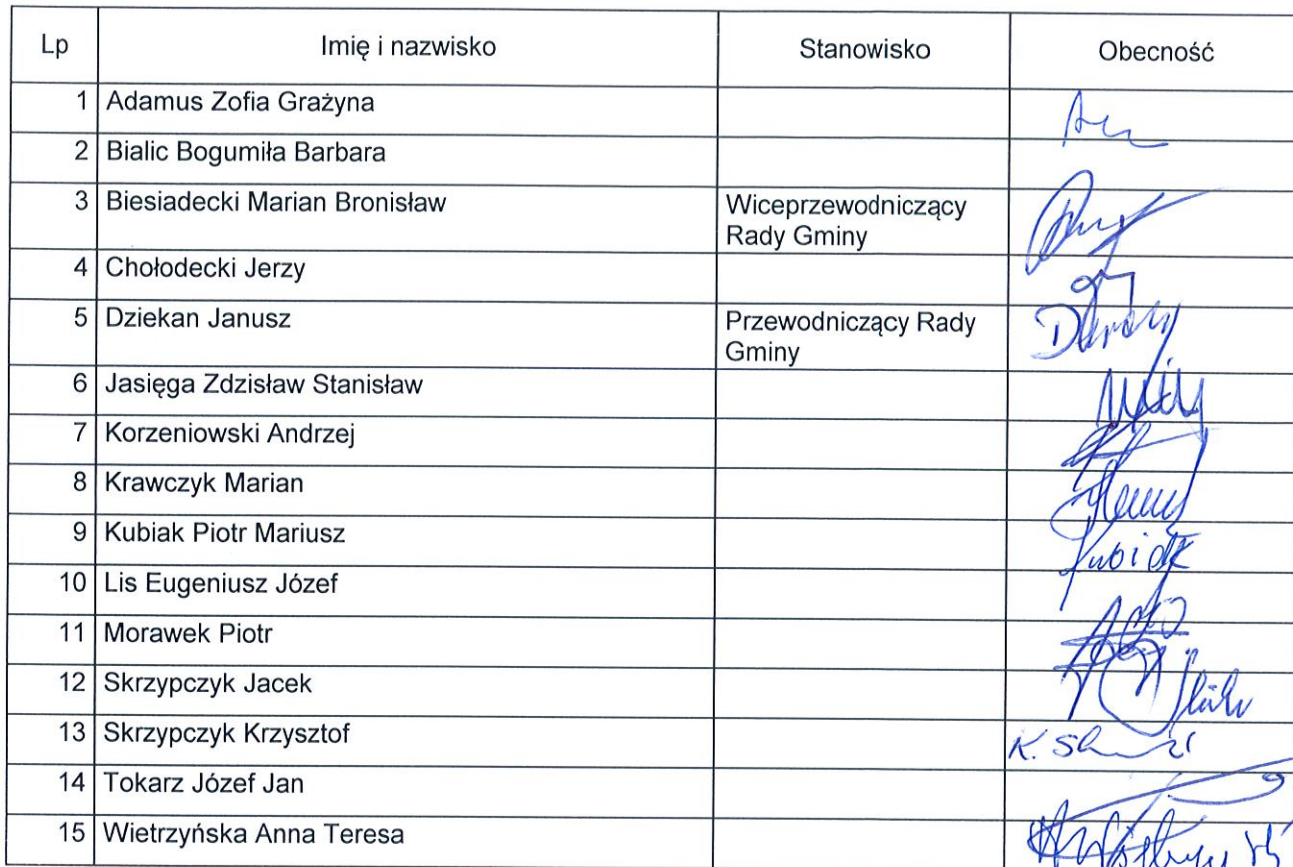 Lp Imię i nazwisko Stanowisko Obecność
1 Adamus Zofia Grażyna
2 Bialic Bogumiła Barbara
3 Biesiadecki Marian Bronisław Wiceprzewodniczący
Rady Gminy
4 Chołodecki Jerzy
5 Dziekan Janusz Przewodniczący Rady
Gminy
6 Jasięga Zdzisław Stanisław
7 Korzeniowski Andrzej
8 Krawczyk Marian
9 Kubiak Piotr Mariusz Kubiak
10 Lis Eugeniusz Józef
11 Morawek Piotr
12 Skrzypczyk Jacek
13 Skrzypczyk Krzysztof K.
14 Tokarz Józef Jan
15 Wietrzyńska Anna Teresa